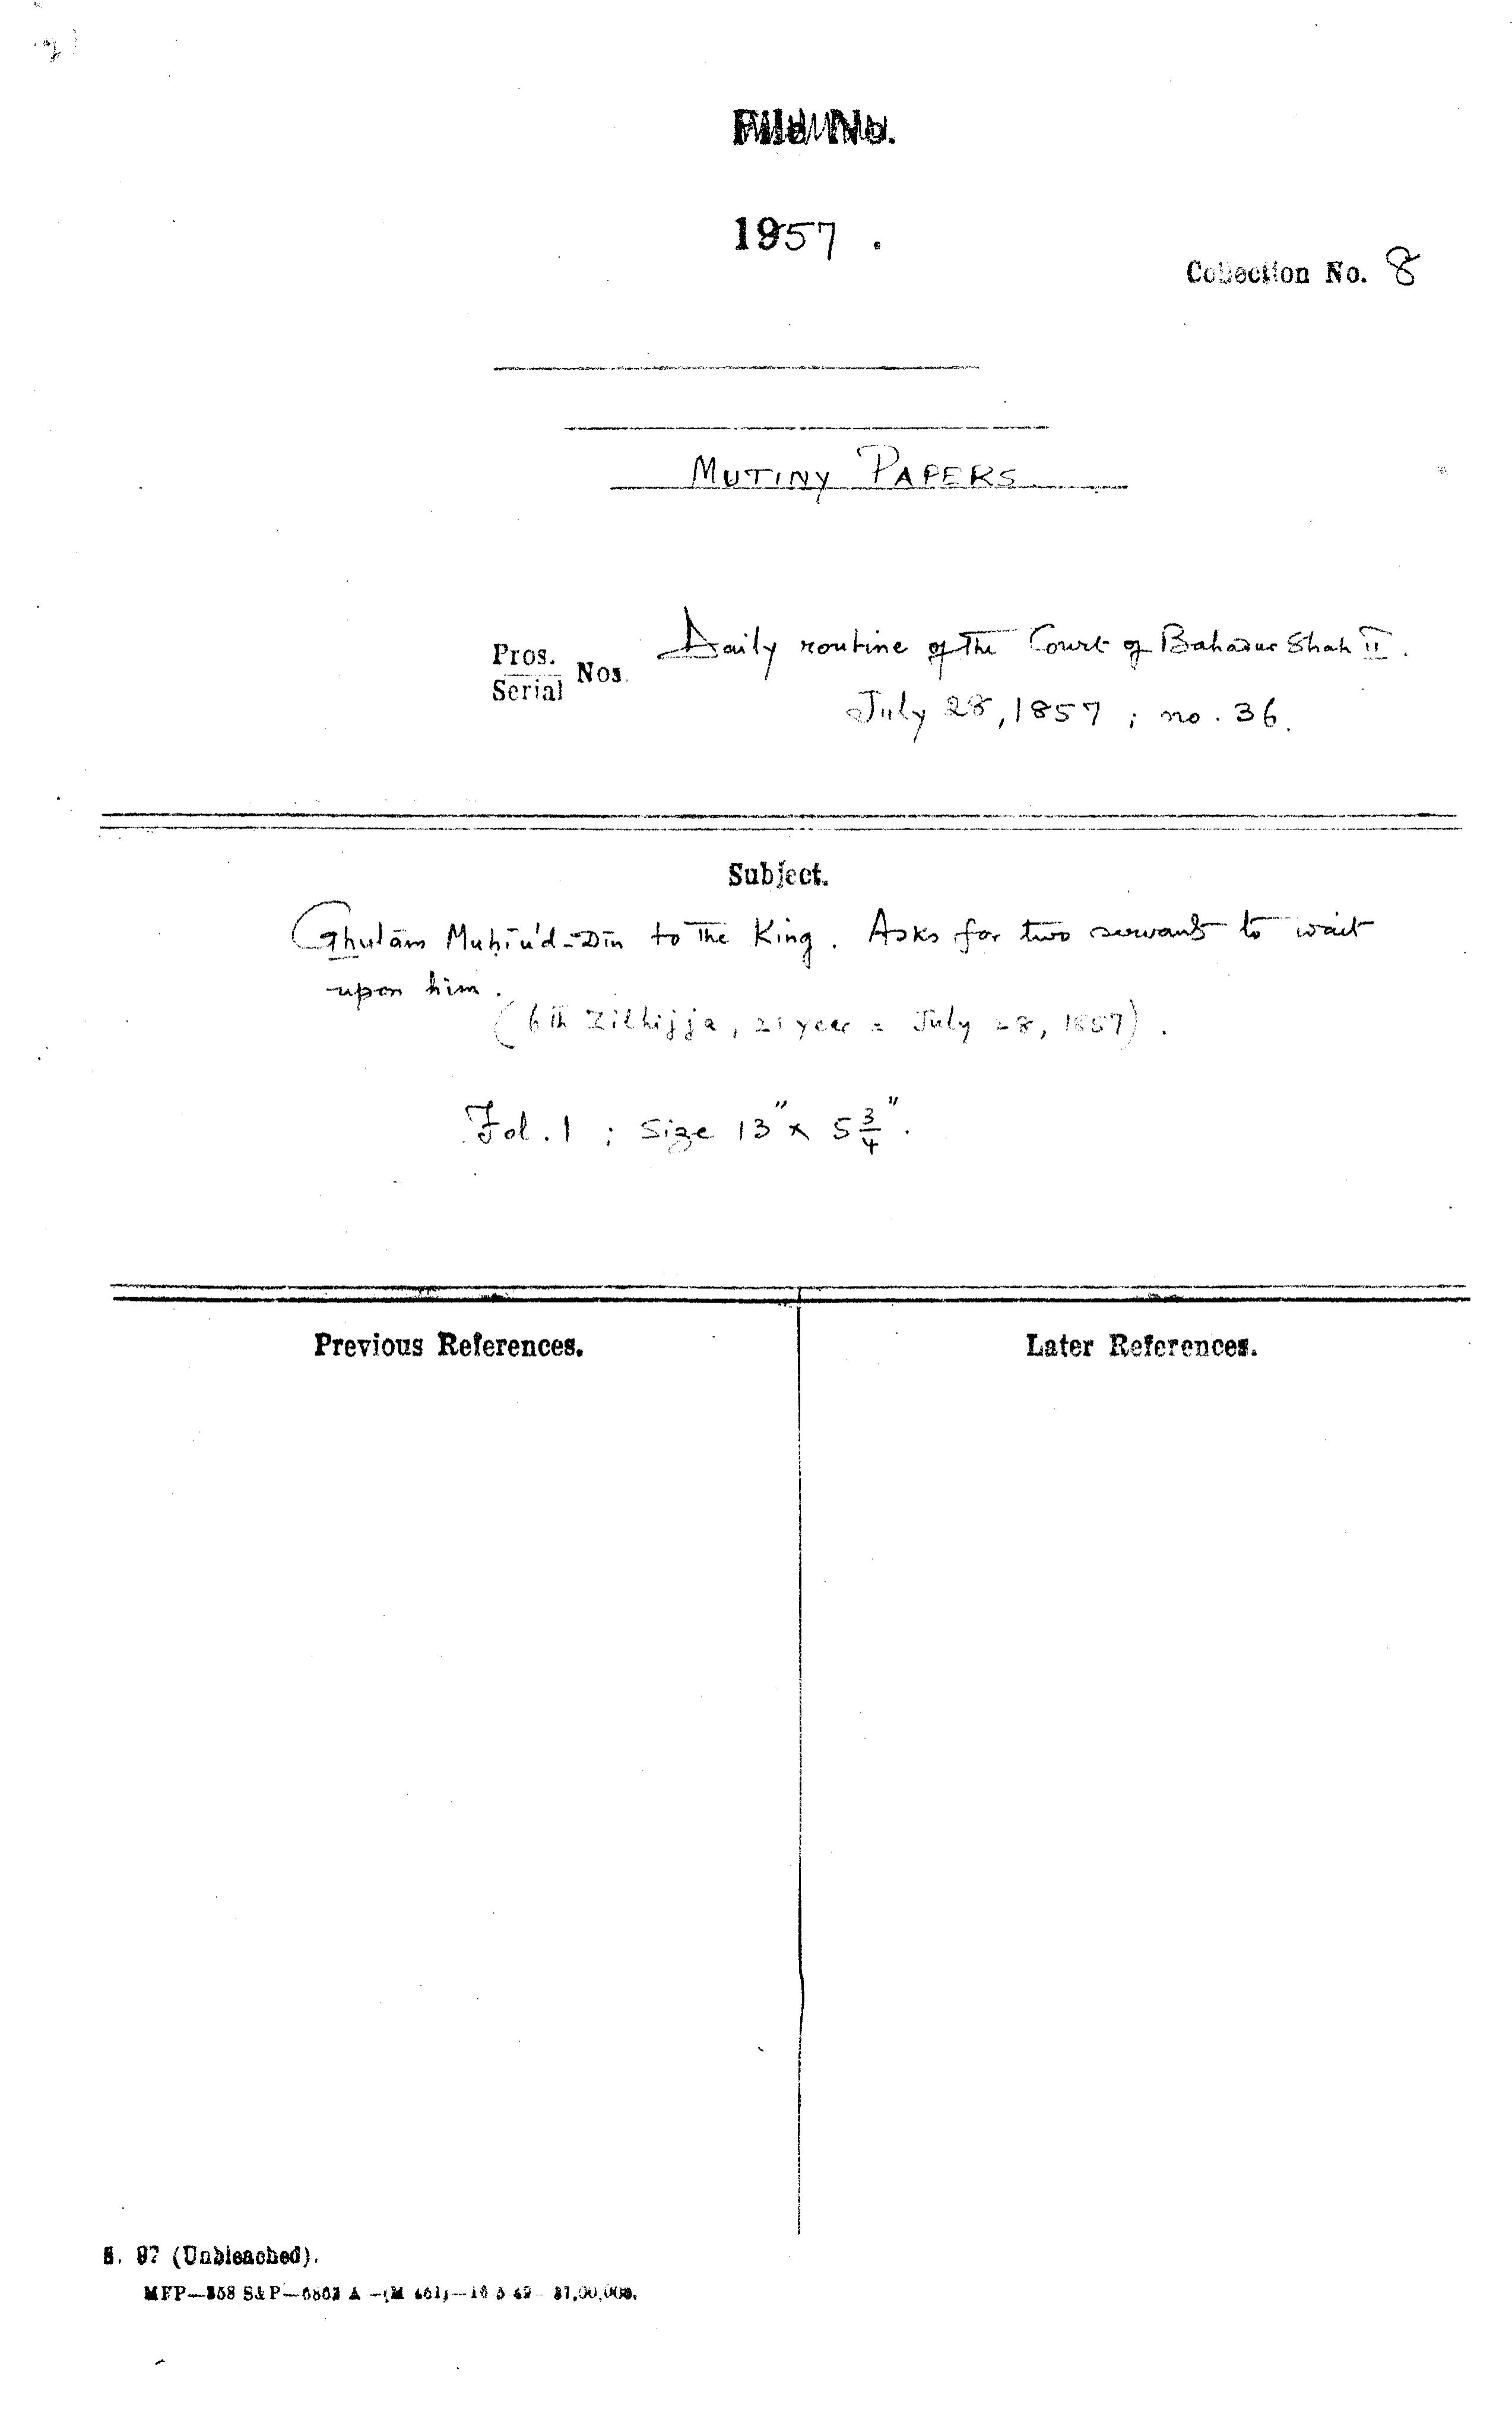 File No.
1957.
Collection No. 8
MUTINY PAPERS
Pros. Serial Nos. Daily routine of the Court of Bahadur Shah II.
July 28, 1857 ; no. 36.
Subject.
Ghulām Muḥīu'd-Dīn to the King. Asks for two servants to wait
upon him.
(6th Zilhijja, 21 year = July 28, 1857).
Fol. 1 ; Size 13" x 5 3/4".
Previous References.
Later References.
S. 97 (Unbleached).